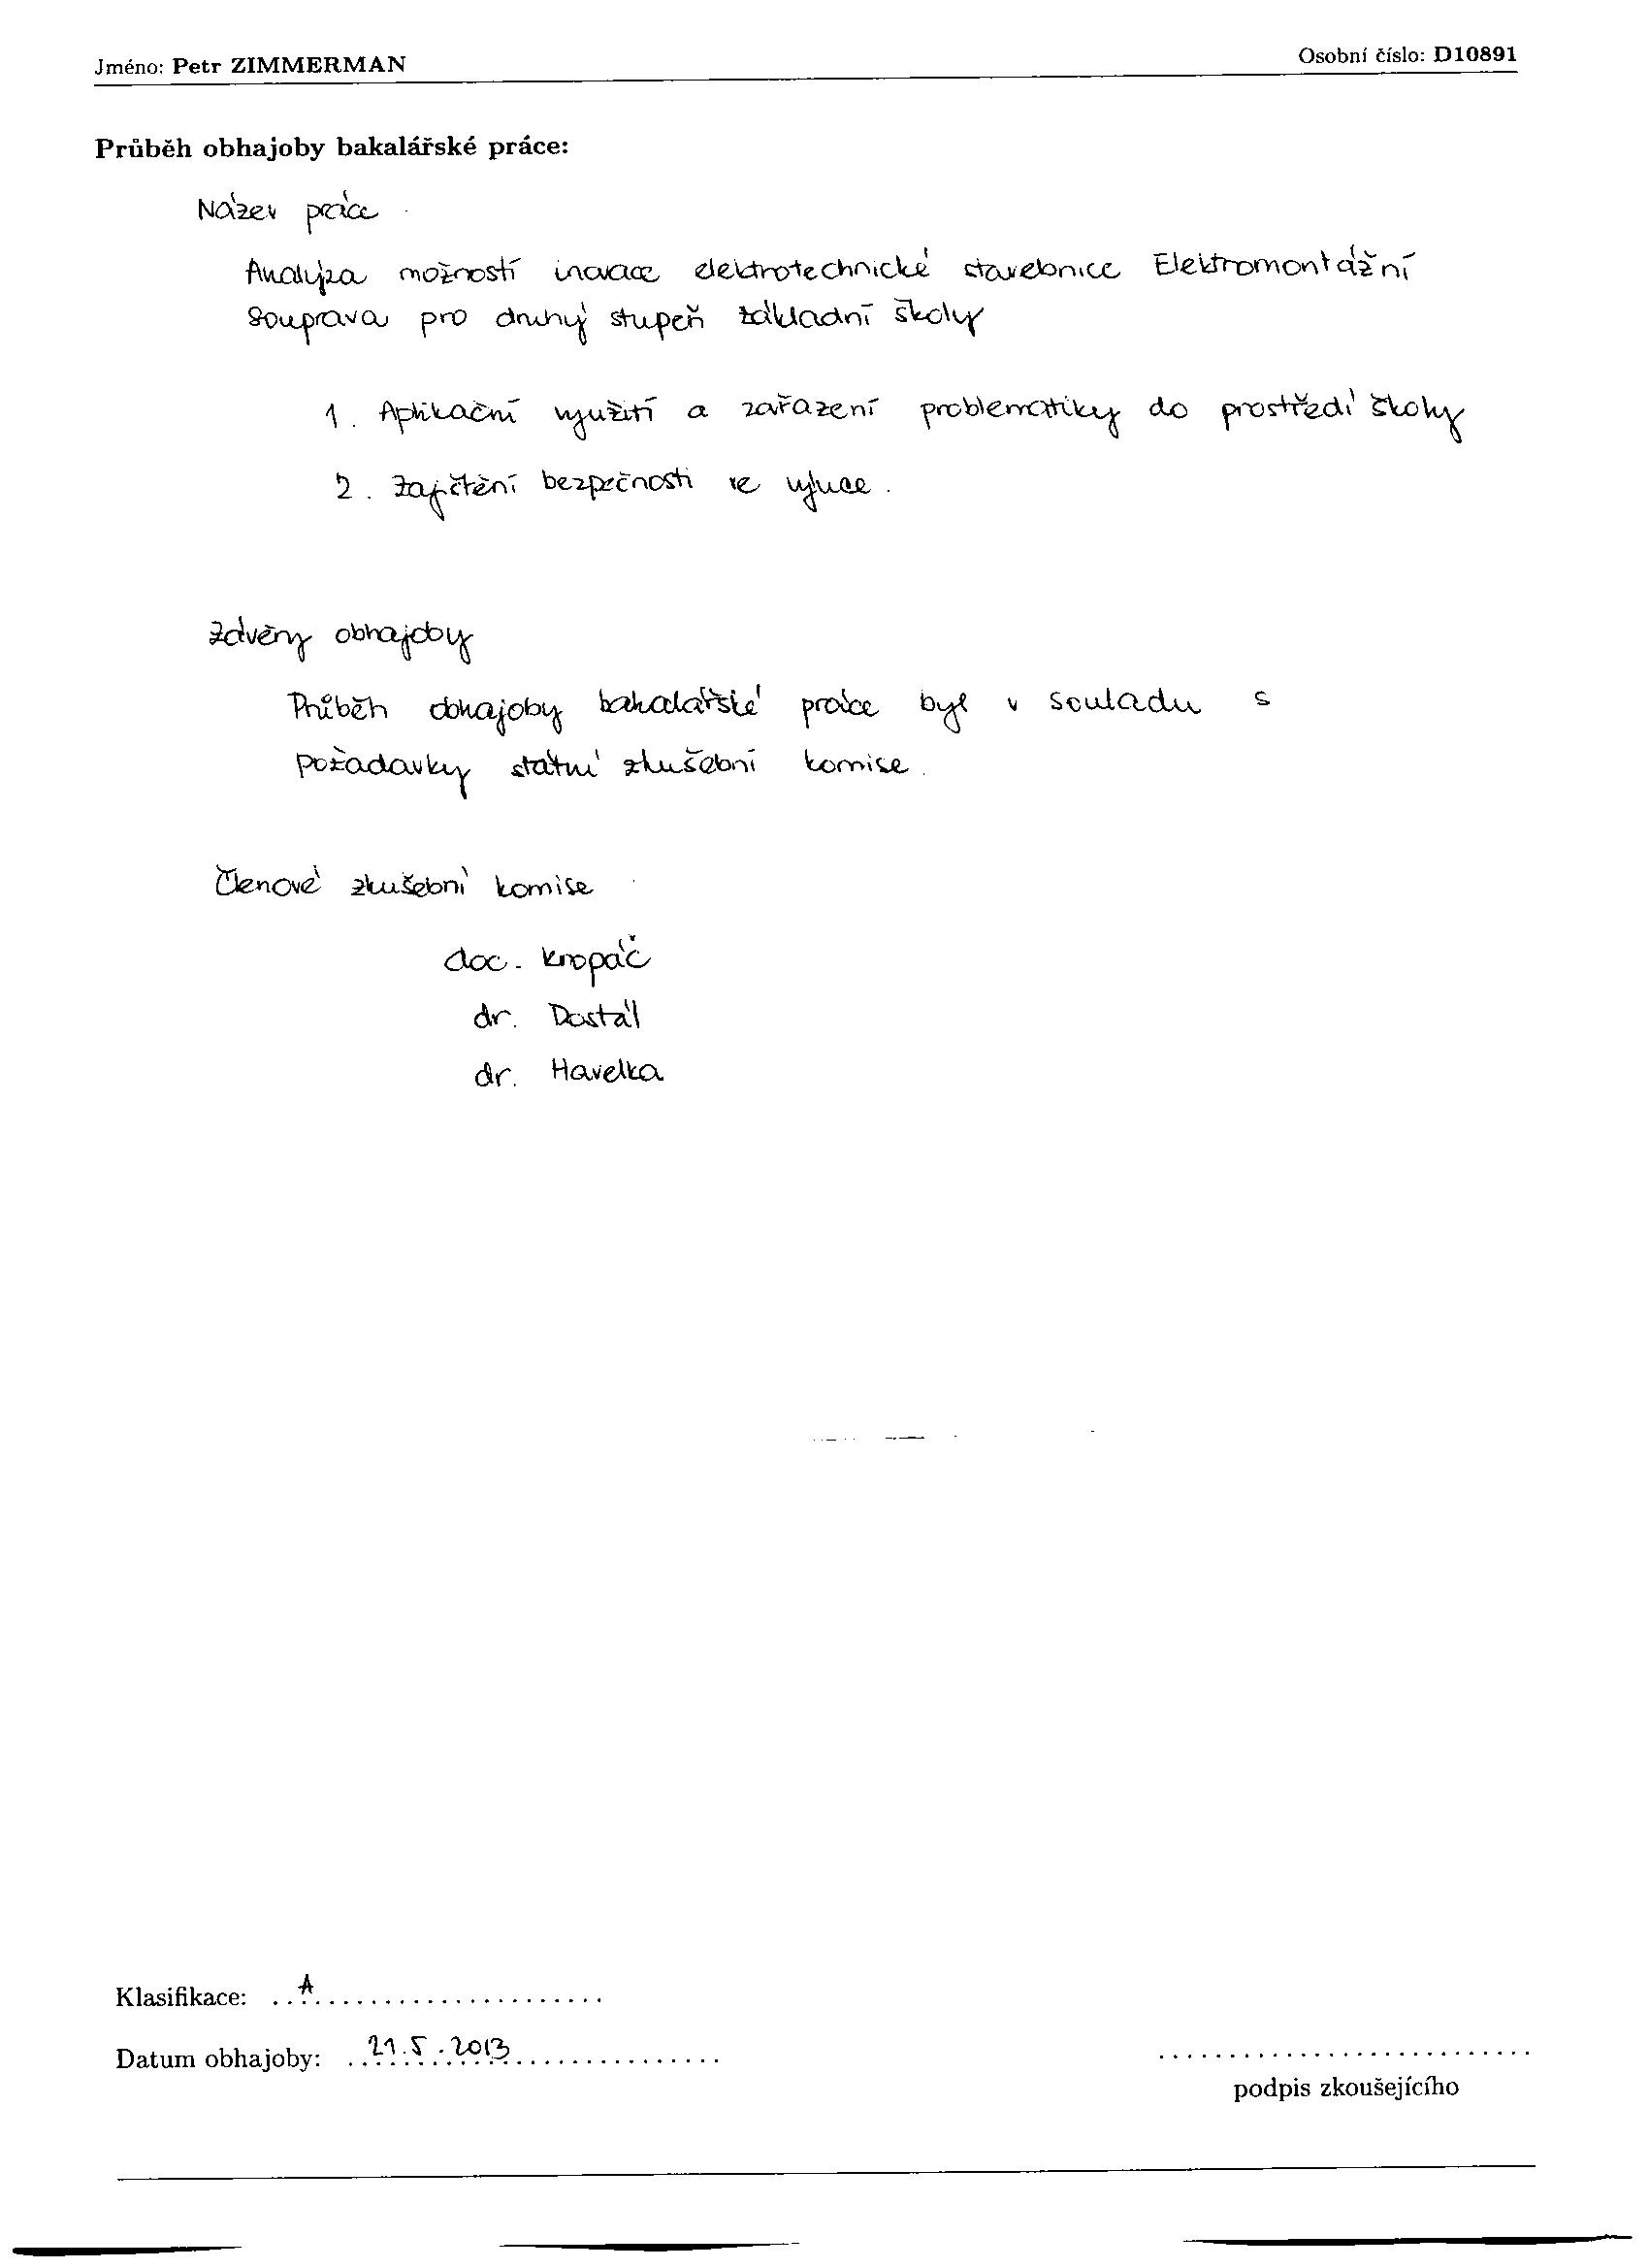 Jméno: Petr ZIMMERMAN
Osobní číslo: D10891
Průběh obhajoby bakalářské práce:
Název práce
Analýza možností inovace elektrotechnické stavebnice Elektromontážní
souprava pro druhý stupeň základní školy
1. Aplikační využití a zařazení problematiky do prostředí školy
2. Zajištění bezpečnosti ve výuce.
Závěry obhajoby
Průběh obhajoby bakalářské práce byl v souladu s
požadavky státní zkušební komise.
Členové zkušební komise
doc. Kropáč
dr. Dostál
dr. Havelka
Klasifikace: A
Datum obhajoby: 21.5.2013
podpis zkoušejícího